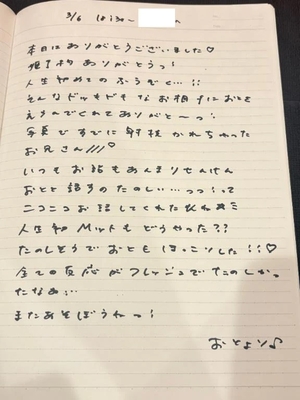 3/6 はじめ〜 ん
本日はありがとうございました♡
指名予約ありがとうっ!
人生初めてのふうぞく...!!
そんなドッキドキなお相手におとを
えらんでくれてありがと〜っ!
写真ですでに射抜かれちゃった
お兄さん///♡
いつもお話もあんまりせんけん
おとと話すのたのしい...っっ!って
ニコニコお話してくれたひね
人生初Mットもどうやった??
たのしそうでおともほっこりした!!♡
全ての反応がフレッシュでたのしかっ
たなぁ...
またあそぼうねっ!
おとより♪